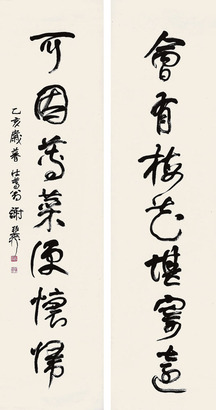 會有梅花堪寄遠
可因蓴菜便懷歸
乙亥歲暮壯暮翁謝稚柳